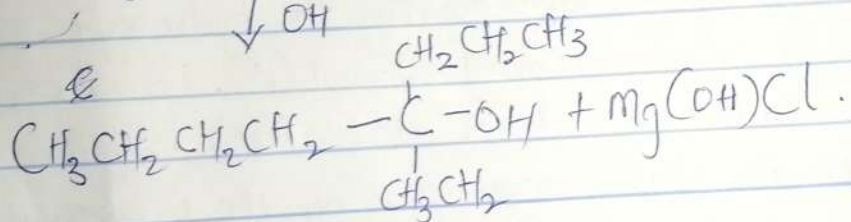 ↓ OH
CH₂CH₂CH₃
CH₃CH₂CH₂CH₂ – C – OH + Mg(OH)Cl.
CH₃CH₂